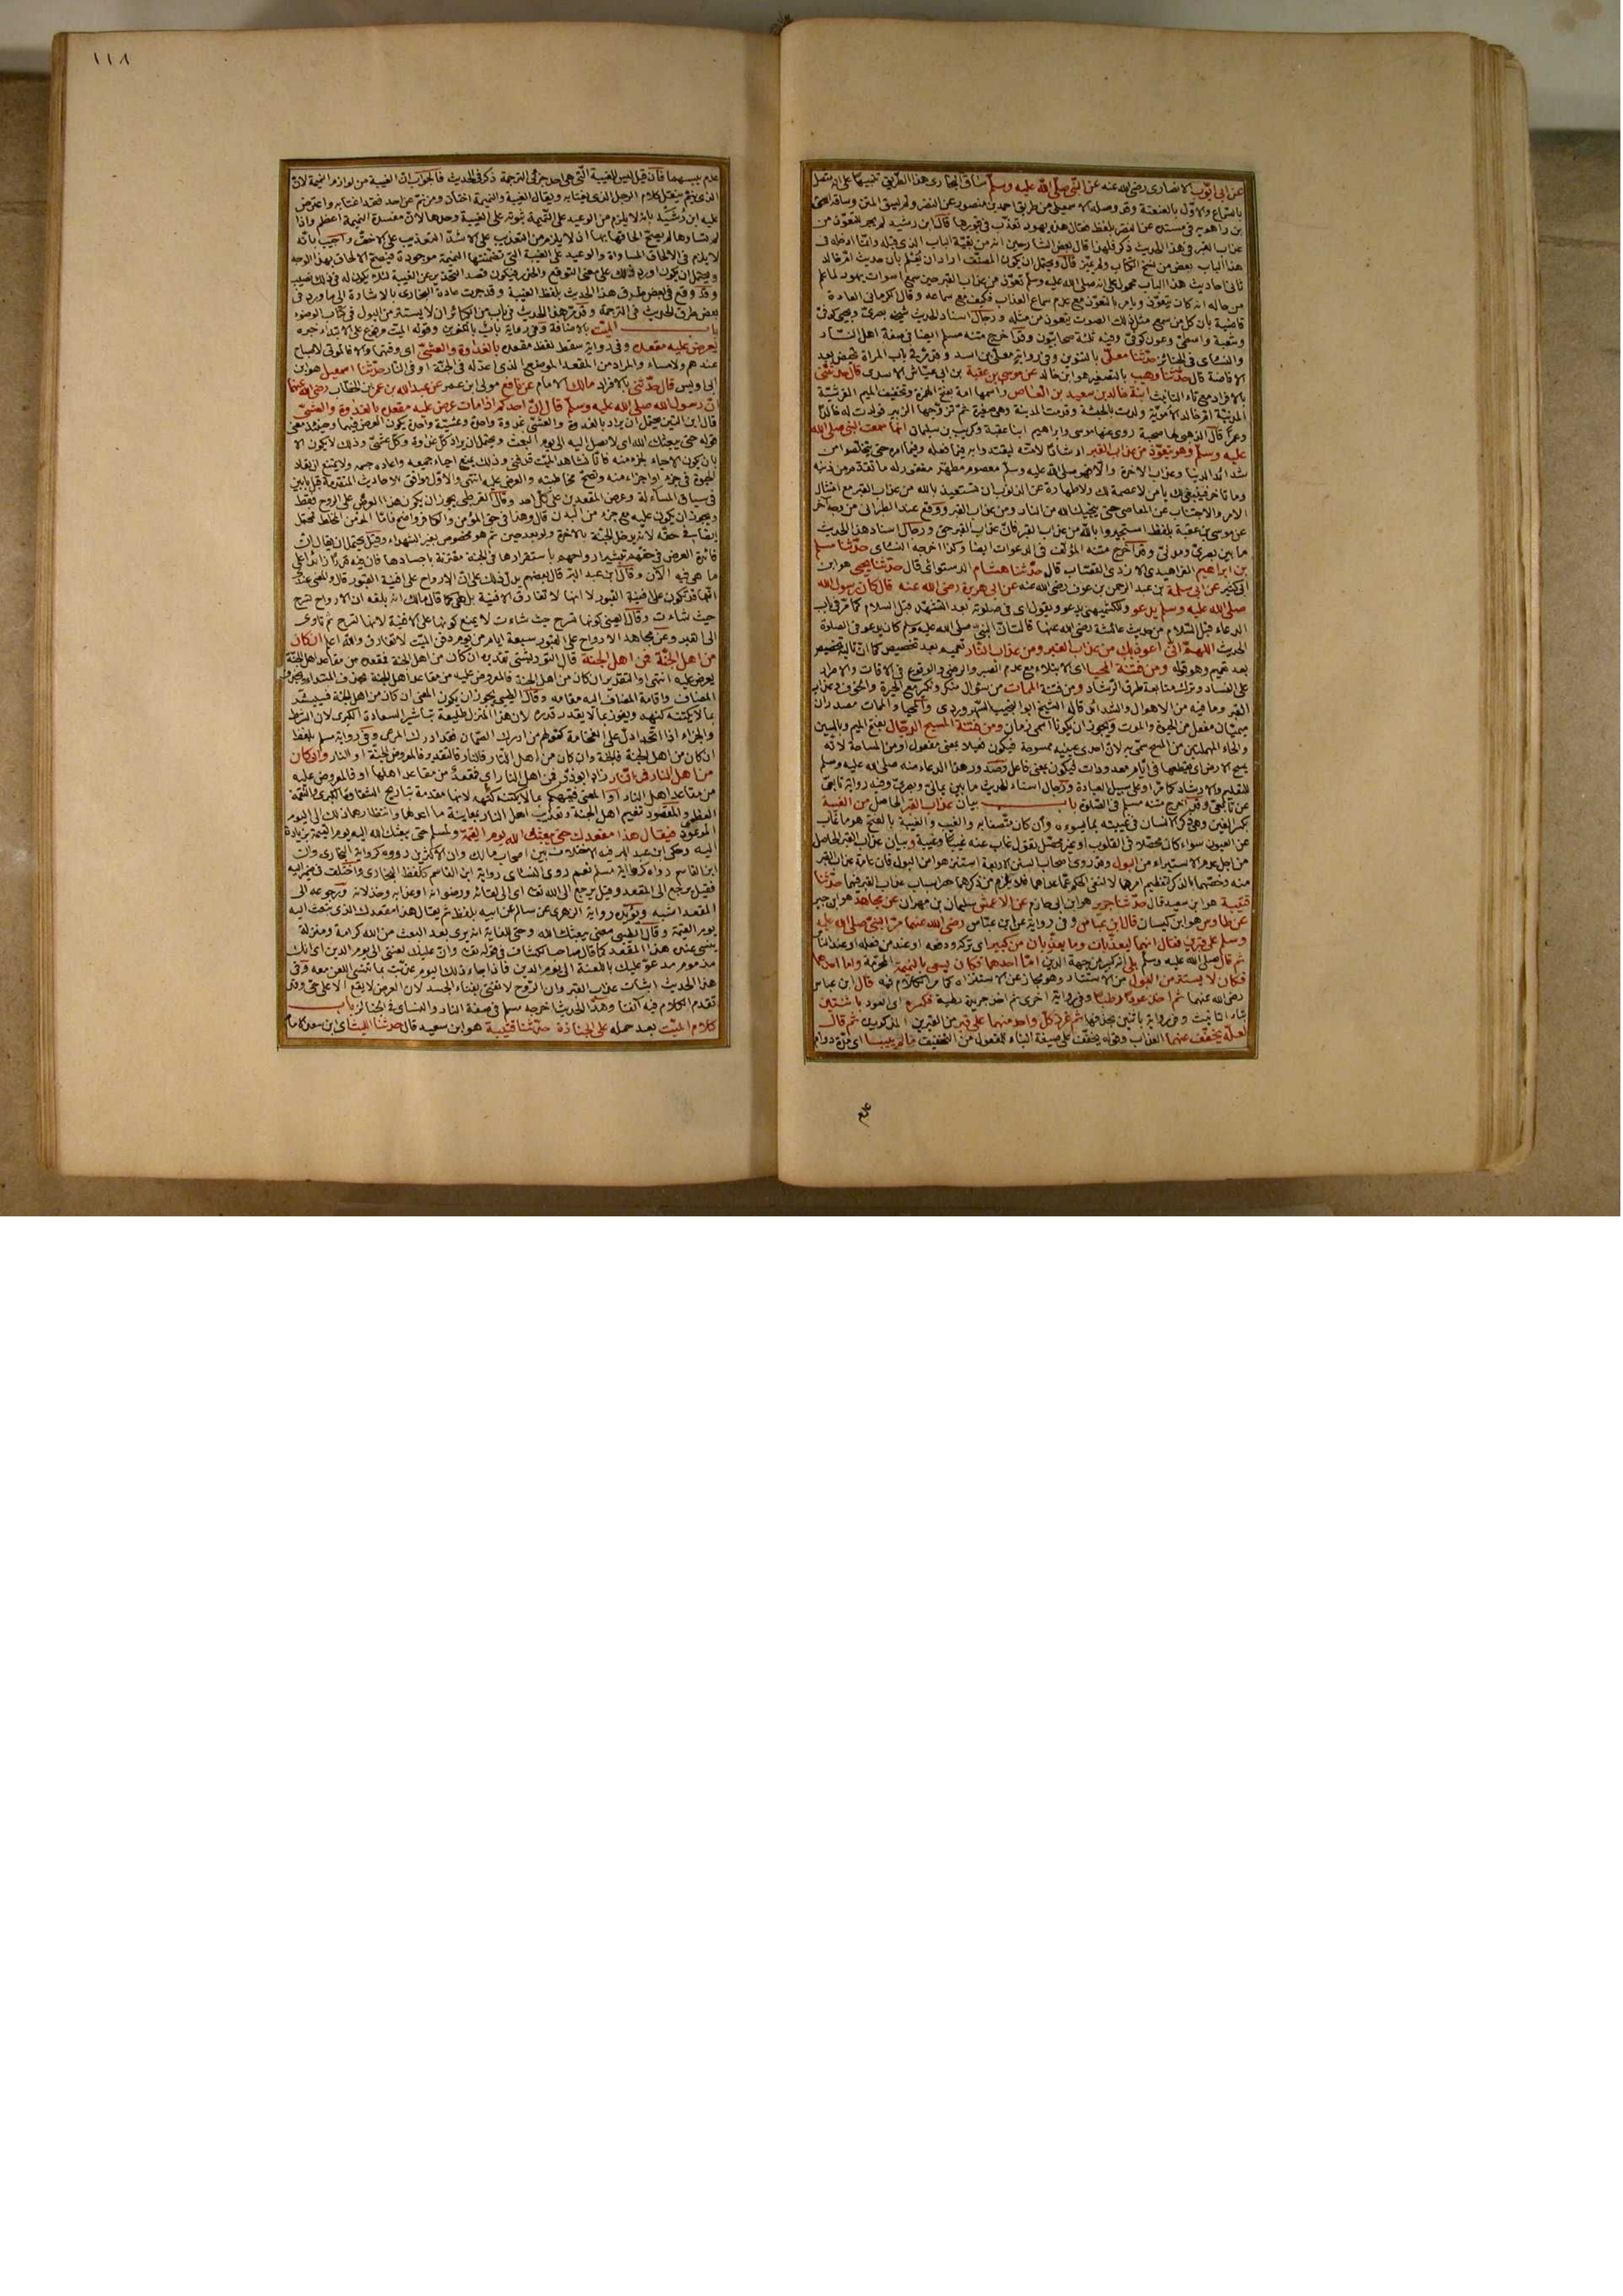 عن ابى ايوب الانصارى رضى الله عنه عن النبى صلى الله عليه وسلم ساق البخارى هذا الطريق تنبيها على انه متصل
بالسماع والاول بالعنعنة وقد وصله الاسمعيلى من طريق احمد بن منصور عن النضر ولم يسق المتن وساقه اسحق
بن راهويه فى مسنده عن النضر بلفظ فقال هذه يهود تعذب فى قبورها قال ابن رشيد لم يجر للتعوذ من
عذاب القبر فى هذا الحديث ذكر فلهذا قال بعض الشارحين انه من بقية الباب الذى قبله وانما ادخله فى
هذا الباب بعض من نسخ الكتاب ولم يميز قال ويحتمل ان يكون المصنف اراد ان يعلم بان حديث ام خالد
ثانى احاديث هذا الباب محمول على انه صلى الله عليه وسلم تعوذ من عذاب القبر حين سمع اصوات يهود لما علم
من حاله انه كان يتعوذ ويامر بالتعوذ مع عدم سماع العذاب فكيف مع سماعه وقال الكرمانى العادة
قاضية بان كل من سمع مثل ذلك الصوت يتعوذ من مثله ورجال اسناد الحديث شيخه بصرى ويحيى كوفى
وشعبة واسطى وعون كوفى وفيه ثلثة صحابيون وقد اخرج متنه مسلم ايضا فى صفة اهل النار
والنسائى فى الجنائز حدثنا معلى بالتنوين وفى رواية معلى بن اسد وقد مر فى باب المراة تحيض بعد
الافاضة قال حدثنا وهيب بالتصغير هو ابن خالد عن موسى بن عقبة بن ابى عياش الاسدى قال حدثتنى
بالافراد مع تاء التانيث ابنة خالد بن سعيد بن العاص واسمها امة بفتح الهمزة وتخفيف الميم القرشية
المدنية ام خالد الاموية ولدت بالحبشة وقدمت المدينة وهى صغيرة ثم تزوجها الزبير فولدت له خالدا
وعمرا قال الذهبى لها صحبة روى عنها موسى وابراهيم ابنا عقبة وكريب بن سليمان انها سمعت النبى صلى الله
عليه وسلم وهو يتعوذ من عذاب القبر ارشادا لامته ليقتدوا به فيما فعله وفيما امر حتى يتخلصوا من
شدائد الدنيا وعذاب الاخرة والا فهو صلى الله عليه وسلم معصوم مطهر مغفور له ما تقدم من ذنبه
وما تاخر فينبغى لك يا من لا عصمة لك ولا طهارة عن الذنوب ان تستعيذ بالله من عذاب القبر مع امتثال
الاوامر والاجتناب عن المعاصى حتى ينجيك الله من النار ومن عذاب القبر ووقع عند الطبرانى من وجه اخر
عن موسى بن عقبة بلفظ استجيروا بالله من عذاب القبر فان عذاب القبر حق ورجال اسناد هذا الحديث
ما بين بصرى ومدنى وقد اخرج متنه المؤلف فى الدعوات ايضا وكذا اخرجه النسائى حدثنا مسلم
بن ابراهيم الفراهيدى الازدى القصاب قال حدثنا هشام الدستوائى قال حدثنا يحيى هو ابن
ابى كثير عن ابى سلمة بن عبد الرحمن بن عوف رضى الله عنه عن ابى هريرة رضى الله عنه قال كان رسول الله
صلى الله عليه وسلم يدعو وللكشميهنى يدعو ويقول اى فى صلوته بعد التشهد قبل السلام كما مر فى باب
الدعاء قبل السلام من حديث عائشة رضى الله عنها قالت ان النبى صلى الله عليه وسلم كان يدعو فى الصلاة
الحديث اللهم انى اعوذ بك من عذاب القبر ومن عذاب النار تعميم بعد تخصيص كما ان تاليه تخصيص
بعد تعميم وهو قوله ومن فتنة المحيا اى الابتلاء مع عدم الصبر والرضى والوقوع فى الافات والاصرار
على الفساد وترك متابعة طرق الرشاد ومن فتنة الممات من سؤال منكر ونكير مع الحيرة والخوف وعذاب
القبر وما فيه من الاهوال والشدائد قاله الشيخ ابو النجيب السهروردى والمحيا والممات مصدران
ميميان مفعل من الحيوة والموت ويجوز ان يكونا اسمى زمان ومن فتنة المسيح الدجال بفتح الميم وبالسين
والحاء المهملتين من المسح سمى به لان احدى عينيه ممسوحة فيكون فعيلا بمعنى مفعول او من المساحة لانه
يمسح الارض اى يقطعها فى ايام معدودات فيكون بمعنى فاعل وصدور هذا الدعاء منه صلى الله عليه وسلم
للتعليم والارشاد كما مر او على سبيل العبادة ورجال اسناد الحديث ما بين يمانى وبصرى وفيه رواية تابعى
عن تابعى وقد اخرج متنه مسلم فى الصلوة باب بيان عذاب القبر الحاصل من الغيبة
بكسر الغين وهى ذكر الانسان فى غيبته بما يسوءه وان كان متصفا به والغيب والغيبة بالفتح هو ما غاب
عن العيون سواء كان محصلا فى القلوب او غير محصل تقول غاب عنه غيبا وغيبة وبيان عذاب القبر الحاصل
من اجل عدم الاستبراء من البول وقد روى اصحاب السنن الاربعة استنزهوا من البول فان عامة عذاب القبر
منه وخصهما بالذكر لتعظيم امرهما لا لنفى الحكم عما عداهما فلا يلزم من ذكرهما حصر اسباب عذاب القبر فيهما حدثنا
قتيبة هو ابن سعيد قال حدثنا جرير هو ابن ابى حازم عن الاعمش سليمان بن مهران عن مجاهد هو ابن جبر
عن طاوس هو ابن كيسان قال ابن عباس وفى رواية عن ابن عباس رضى الله عنهما مر النبى صلى الله عليه
وسلم على قبرين فقال انهما ليعذبان وما يعذبان من كبير اى تركه ودفعه او عندهم فعله او عند الناس
ثم قال صلى الله عليه وسلم بلى انه كبير من جهة الدين اما احدهما فكان يسعى بالنميمة المحرمة واما احدهما
فكان لا يستتر من البول من الاستتار وهو مجاز عن الاستنزاه كما مر الكلام فيه قال ابن عباس
رضى الله عنهما ثم اخذ عودا رطبا وفى رواية اخرى ثم اخذ جريدة رطبة فكسره اى العود باثنتين
بتاء التانيث وفى رواية باثنين بحذفها ثم غرز كل واحد منهما على قبر من القبرين المذكورين ثم قال
لعله يخفف عنهما العذاب وقوله يخفف على صيغة البناء للمفعول من التخفيف ما لم ييبسا اى مدة دوام
عدم
١١٨
عدم يبسهما فان قيل ليس للغيبة التى هى احد جزئى الترجمة ذكر فى الحديث فالجواب ان الغيبة من لوازم النميمة لان
الذى ينم ينقل كلام الرجل الذى يغتابه ويقال الغيبة والنميمة اختان ومن نم عن احد فقد اغتابه واعترض
عليه ابن رشيد بانه لا يلزم من الوعيد على النميمة ثبوته على الغيبة وحدها لان مفسدة النميمة اعظم واذا
لم تساوها لم يصح الحاقها بها اذ لا يلزم من التعذيب على الاشد التعذيب على الاخف واجيب بانه
لا يلزم فى الالحاق المساواة والوعيد على الغيبة التى تضمنتها النميمة موجودة فيصح الالحاق بهذا الوجه
ويحتمل ان يكون اورد ذلك على معنى التوقع والحذر فيكون قصد التحذير عن الغيبة لئلا يكون له فى ذلك نصيب
وقد وقع فى بعض طرق هذا الحديث بلفظ الغيبة وقد جرت عادة البخارى بالاشارة الى ما ورد فى
بعض طرق الحديث فى الترجمة وقد مر هذا الحديث فى باب من الكبائر ان لا يستتر من البول فى كتاب الوضوء
باب الميت بالاضافة وفى رواية باب بالتنوين وقوله الميت مرفوع على الابتداء خبره
يعرض عليه مقعده وفى رواية سقط لفظ مقعده بالغداوة والعشى اى وقتهما والا فالموتى لا صباح
عندهم ولا مساء والمراد من المقعد الموضع الذى اعد له فى الجنة او فى النار حدثنا اسمعيل هو ابن
ابى اويس قال حدثنى بالافراد مالك الامام عن نافع مولى ابن عمر عن عبد الله بن عمر بن الخطاب رضى الله عنهما
ان رسول الله صلى الله عليه وسلم قال ان احدكم اذا مات عرض عليه مقعده بالغداوة والعشى
قال ابن التين يحتمل ان يراد بالغدوة والعشى غدوة واحدة وعشية واحدة يكون العرض فيهما وحينئذ معنى
قوله حتى يبعثك الله اى لا يصل اليه الى يوم البعث ويحتمل ان يراد كل غدوة وكل عشى وذلك لا يكون الا
بان يكون الاحياء لجزء منه فانا نشاهد الميت قد فنى وذلك يمنع احياء جميعه واعادة جسمه ولا يمتنع ان تعاد
الحيوة فى جزء او اجزاء منه وتصح مخاطبته والعرض عليه انتهى والاول موافق الاحاديث المتقدمة قبل بابين
فى سياق المساءلة وعرض المقعدين على كل احد وقال القرطبى يجوز ان يكون هذا العرض على الروح فقط
ويجوز ان يكون عليه مع جزء من البدن قال وهذا فى حق المؤمن والكافر واضح فاما المؤمن المخلط فيحتمل
ايضا فى حقه لانه يدخل الجنة بالاخرة ولو بعد حين ثم هو مخصوص بغير الشهداء وقيل يحتمل ان يقال ان
فائدة العرض فى حقهم تبشير ارواحهم باستقرارها فى الجنة مقترنة باجسادها فان فيه قدرا زائدا على
ما هى فيه الان وقال ابن عبد البر قال بعضهم يدل ذلك على ان الارواح على افنية القبور قال والمعنى عندى
انها قد تكون على افنية القبور لا انها لا تفارق الافنية بل هى كما قال مالك انه بلغه ان الارواح تسرح
حيث شاءت وقال العينى كونها تسرح حيث شاءت لا يمنع كونها على الافنية لانها تسرح ثم تاوى
الى القبر وعن مجاهد الارواح على القبور سبعة ايام من يوم دفن الميت لا تفارق والله اعلم ان كان
من اهل الجنة فمن اهل الجنة قال التوربشتى تقديره ان كان من اهل الجنة فمقعده من مقاعد اهل الجنة
يعرض عليه انتهى او التقدير ان كان من اهل الجنة فالمعروض عليه من مقاعد اهل الجنة فحذف المبتدا والمجرور
المضاف واقامة المضاف اليه مقامه وقال الطيبى يجوز ان يكون المعنى ان كان من اهل الجنة فسيبشر
بما لا يكتنه كنهه ويفوز بما لا يقدر قدره لان هذا المنزل طليعة تباشير السعادة الكبرى لان الشرط
والجزاء اذا اتحدا دل على الفخامة كقولهم من ادرك الصمان فقد ادرك المرعى وفى رواية مسلم بلفظ
ان كان من اهل الجنة فالجنة وان كان من اهل النار فالنار فالتقدير فالمعروض الجنة او النار وان كان
من اهل النار فمن النار زاد ابو ذر فمن اهل النار اى فمقعده من مقاعد اهلها او فالمعروض عليه
من مقاعد اهل النار او المعنى فيبشر بما لا يكتنه كنهه لانها مقدمة تباريح الشقاوة الكبرى والنقمة
العظمى والمقصود تنعيم اهل الجنة وتعذيب اهل النار بمعاينة ما اعد لها وانتظارهما ذلك الى اليوم
الموعود فيقال هذا مقعدك حتى يبعثك الله يوم القيمة ولمسلم حتى يبعثك الله اليه يوم القيمة بزيادة
اليه وحكى ابن عبد البر فيه الاختلاف بين اصحاب مالك وان الاكثرين رووه كرواية البخارى وان
ابن القاسم رواه كرواية مسلم نعم روى النسائى رواية ابن القاسم كلفظ البخارى واختلف فى ضمير اليه
فقيل يرجع الى المقعد وقيل يرجع الى الله تعالى اى الى لقائه ورضوانه او عذابه وخذلانه ورجوعه الى
المقعد اشبه ويؤيده رواية الزهرى عن سالم عن ابيه بلفظ ثم يقال هذا مقعدك الذى تبعث اليه
يوم القيمة وقال الطيبى معنى يبعثك الله وحتى للغاية انه يرى بعد البعث من الله كرامة ومنزلة
ينسى عنده هذا المقعد كما قال صاحب الكشاف فى قوله تعالى وان عليك لعنتى الى يوم الدين اى انك
مذموم مدعو عليك باللعنة الى يوم الدين فاذا جاء ذلك اليوم عذبت بما تنسى اللعن معه وفى
هذا الحديث اثبات عذاب القبر وان الروح لا تفنى بفناء الجسد لان العرض لا يقع الا على حى وقد
تقدم الكلام فيه انفا وهذا الحديث اخرجه مسلم فى صفة النار والنسائى فى الجنائز باب
كلام الميت بعد حمله على الجنازة حدثنا قتيبة هو ابن سعيد قال حدثنا الليث اى ابن سعد الامام